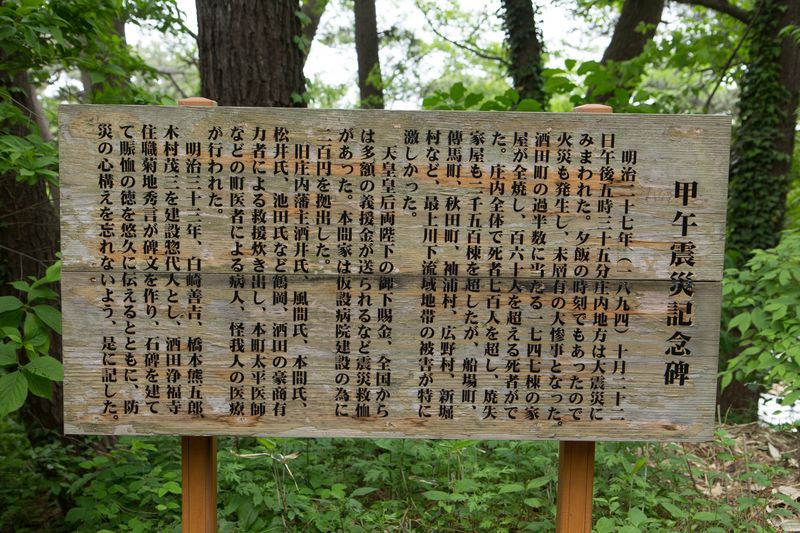 甲午震災記念碑
明治二十七年（一八九四）十月二十二
日午後五時三十五分庄内地方は大震災に
みまわれた。夕飯の時刻でもあったので
火災も発生し、未層有の大惨事となった。
酒田町の過半数に当たる一七四七棟の家
屋が全焼し、百六十人を超える死者がで
た。庄内全体で死者七百人を超し、焼失
家屋も二千五百棟を超したが、船場町、
傳馬町、秋田町、袖浦村、広野村、新堀
村など、最上川下流域地帯の被害が特に
激しかった。
天皇皇后両陛下の御下賜金、全国から
は多額の義援金が送られるなど震災救恤
があった。本間家は仮設病院建設の為に
二百円を拠出した。
旧庄内藩主酒井氏、風間氏、本間氏、
松井氏、池田氏など鶴岡、酒田の豪商有
力者による救援炊き出し、本町太平医師
などの町医者による病人、怪我人の医療
が行われた。
明治三十二年、白崎善吉、橋本熊五郎、
木村茂三を建設惣代人とし、酒田浄福寺
住職菊地秀言が碑文を作り、石碑を建て
て賑恤の徳を悠久に伝えるとともに、防
災の心構えを忘れないよう、是に記した。